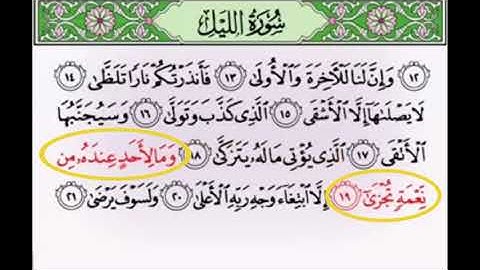 سُورَةُ اللَّيْلِ
١٢ وَإِنَّ لَنَا لَلْآخِرَةَ وَالْأُولَىٰ ١٣ فَأَنذَرْتُكُمْ نَارًا تَلَظَّىٰ ١٤
لَا يَصْلَاهَا إِلَّا الْأَشْقَى ١٥ الَّذِي كَذَّبَ وَتَوَلَّىٰ ١٦ وَسَيُجَنَّبُهَا
الْأَتْقَى ١٧ الَّذِي يُؤْتِي مَالَهُ يَتَزَكَّىٰ ١٨ وَمَا لِأَحَدٍ عِندَهُ مِن
نِّعْمَةٍ تُجْزَىٰ ١٩ إِلَّا ابْتِغَاءَ وَجْهِ رَبِّهِ الْأَعْلَىٰ ٢٠ وَلَسَوْفَ يَرْضَىٰ ٢١